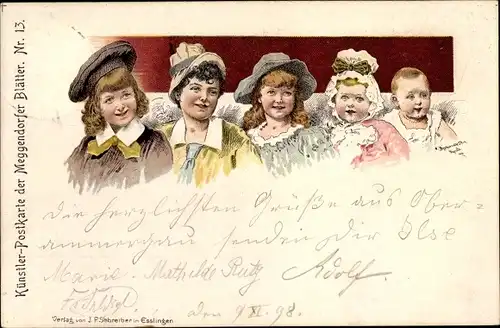 Künstler-Postkarte der Meggendorfer Blätter. Nr. 13.
Die herzlichsten Grüße aus Ober-
ammergau senden dir Ilse
Marie. Mathilde Rutz Adolf.
den 9 XI. 98.
Verlag von J. F. Schreiber in Esslingen.